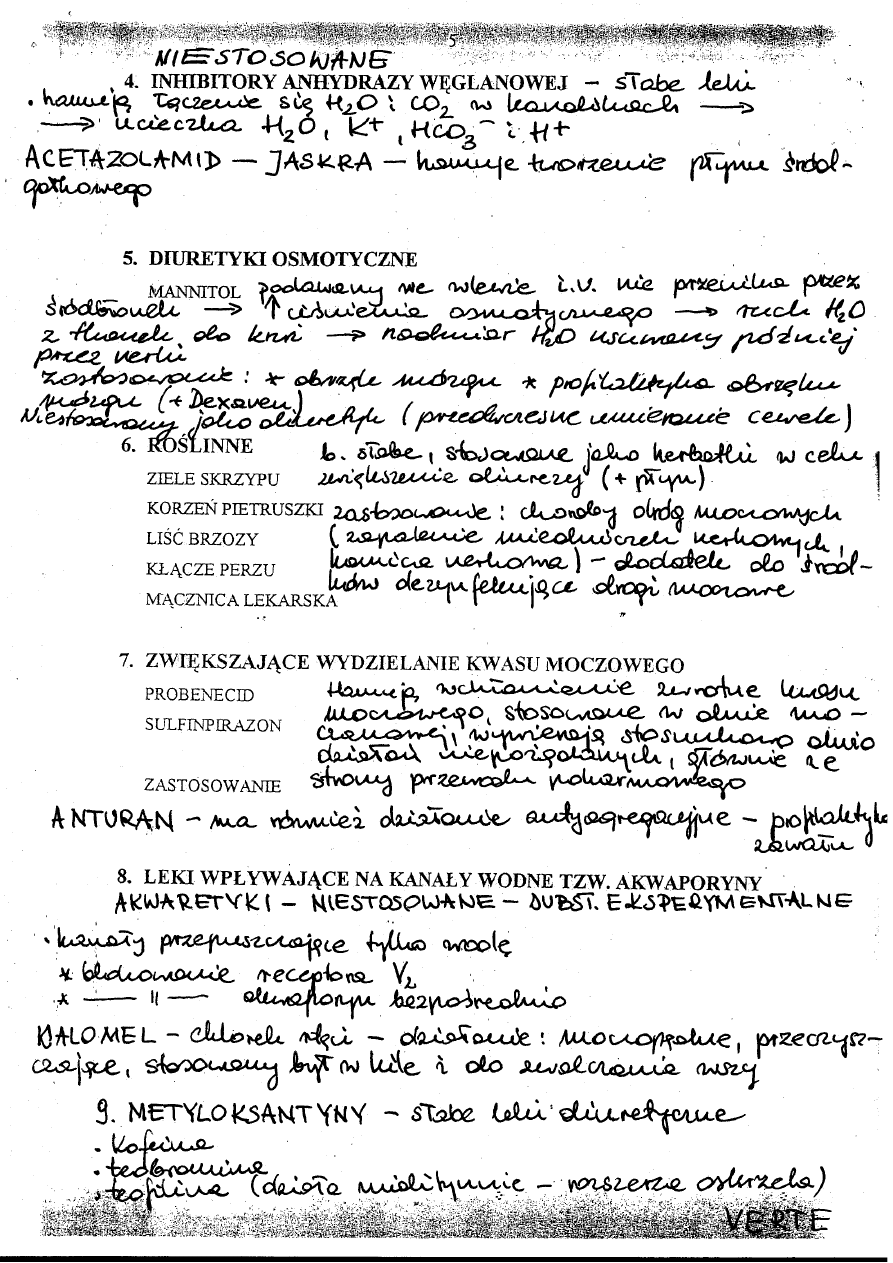 5
NIESTOSOWANE
4. INHIBITORY ANHYDRAZY WĘGLANOWEJ – słabe leki
• hamują łączenie się H₂O i CO₂ w kanalikach →
→ ucieczka H₂O, K+, HCO₃⁻ i H+
ACETAZOLAMID – JASKRA – hamuje tworzenie płynu śród-
gałkowego
5. DIURETYKI OSMOTYCZNE
MANNITOL podawany we wlewie i.v. nie przenika przez
śródbłonek → ↑ ciśnienia osmotycznego → ruch H₂O
z tkanek do krwi → nadmiar H₂O usuwany później
przez nerki
zastosowanie: * obrzęk mózgu * profilaktyka obrzęku
mózgu (+ Dexaven)
Niestosowany jako diuretyk (przedwczesne umieranie cewek)
6. ROŚLINNE b. słabe, stosowane jako herbatki w celu
ZIELE SKRZYPU zwiększenie diurezy (+ płyn)
KORZEŃ PIETRUSZKI zastosowanie: choroby dróg moczowych
LIŚĆ BRZOZY (zapalenie miedniczek nerkowych,
KŁĄCZE PERZU kamica nerkowa) – dodatek do środ-
MĄCZNICA LEKARSKA ków dezynfekujące drogi moczowe
7. ZWIĘKSZAJĄCE WYDZIELANIE KWASU MOCZOWEGO
PROBENECID Hamują wchłanianie zwrotne kwasu
SULFINPIRAZON moczowego, stosowane w dnie mo-
czanowej, wywierają stosunkowo dużo
działań niepożądanych, głównie ze
ZASTOSOWANIE strony przewodu pokarmowego
ANTURAN – ma również działanie antyagregacyjne – profilaktyka
zawału
8. LEKI WPŁYWAJĄCE NA KANAŁY WODNE TZW. AKWAPORYNY
AKWARETYKI – NIESTOSOWANE – SUBST. EKSPERYMENTALNE
• kanały przepuszczające tylko wodę
* blokowanie receptora V₂
* — || — akwaporyn bezpośrednio
KALOMEL – chlorek rtęci – działanie: moczopędne, przeczysz-
czające, stosowany był w kile i do zwalczania wszy
9. METYLOKSANTYNY – słabe leki diuretyczne
• kofeina
• teobromina
• teofilina (działa miolitycznie – rozszerza oskrzela)
VERTE